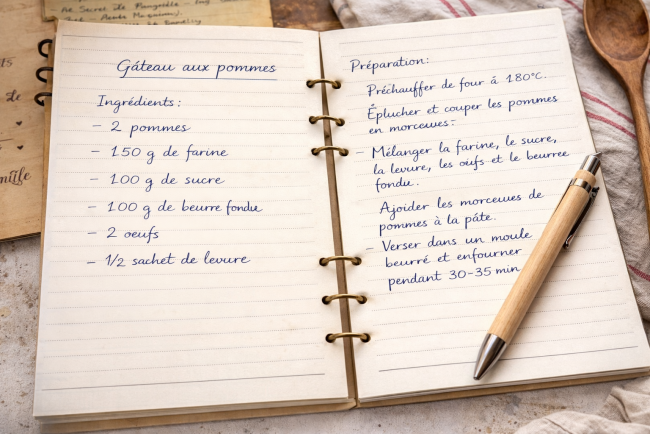 Le Secret de
Gâteau aux pommes
Ingrédients:
- 2 pommes
- 150 g de farine
- 100 g de sucre
- 100 g de beurre fondu
- 2 oeufs
- 1/2 sachet de levure
Préparation:
Préchauffer de four à 180°C.
Éplucher et couper les pommes
en morceuues:-
- Mélanger la farine, le sucre,
la levure, les oeufs et le beurree
fondu.
Ajoider les morceuues de
pommes à la pâte.
- Verser dans un moule
beurré et enfourner
pendant 30-35 min